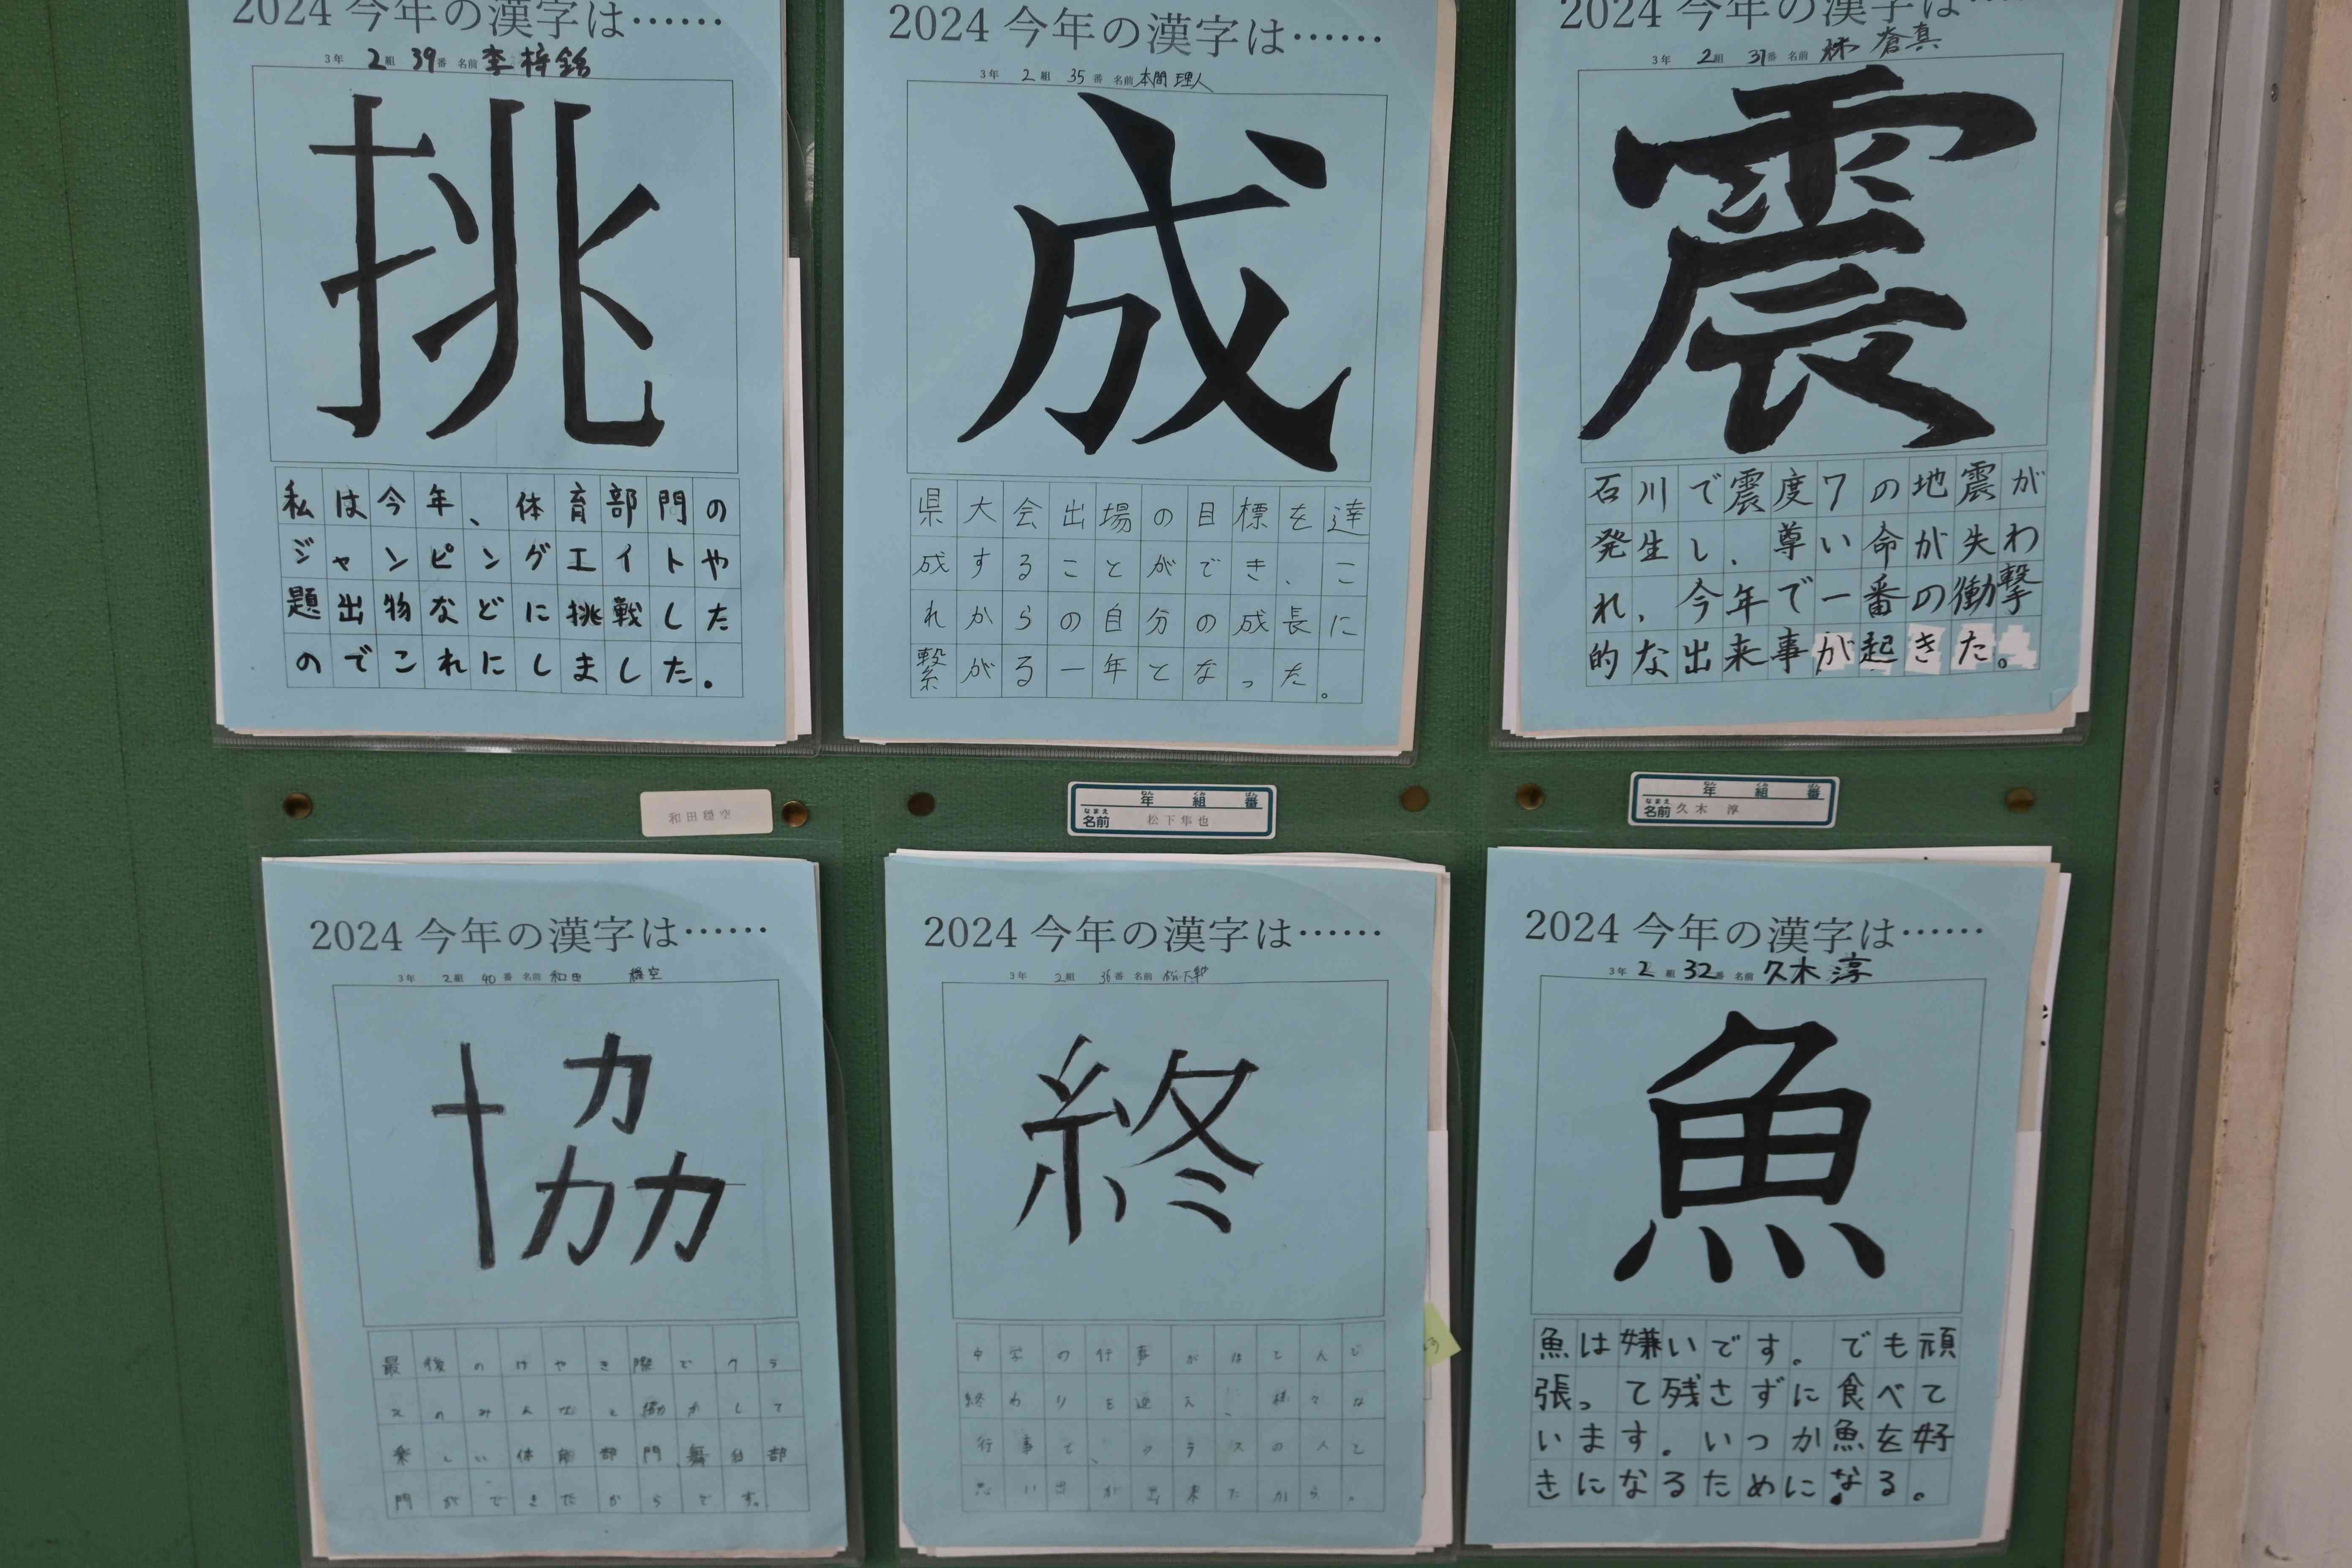 2024 今年の漢字は……
3年 2組 39番 名前 李梓銘
挑
私は今年、体育部門の
ジャンピングエイトや
題出物などに挑戦した
のでこれにしました。
2024 今年の漢字は……
3年 2組 35番 名前 本間理人
成
県大会出場の目標を達
成することができ、こ
れからの自分の成長に
繋がる一年となった。
2024 今年の漢字は……
3年 2組 31番 名前 蒼真
震
石川で震度7の地震が
発生し、尊い命が失わ
れ、今年で一番の衝撃
的な出来事が起きた。
和田穏空
年 組 番
なまえ
名前 松下隼也
年 組 番
なまえ
名前 久木 淳
2024 今年の漢字は……
3年 2組 40番 名前 和田 穏空
協
最後のけやき際でクラ
スのみんなと協力して
楽しい体育部門、舞台部
門ができたからです。
2024 今年の漢字は……
3年 2組 36番 名前 松下隼
終
中学の行事がほとんど
終わりを迎え、様々な
行事で、クラスの人と
思い出が出来たから。
2024 今年の漢字は……
3年 2組 32番 名前 久木淳
魚
魚は嫌いです。でも頑
張って残さずに食べて
います。いつか魚を好
きになるためになる。